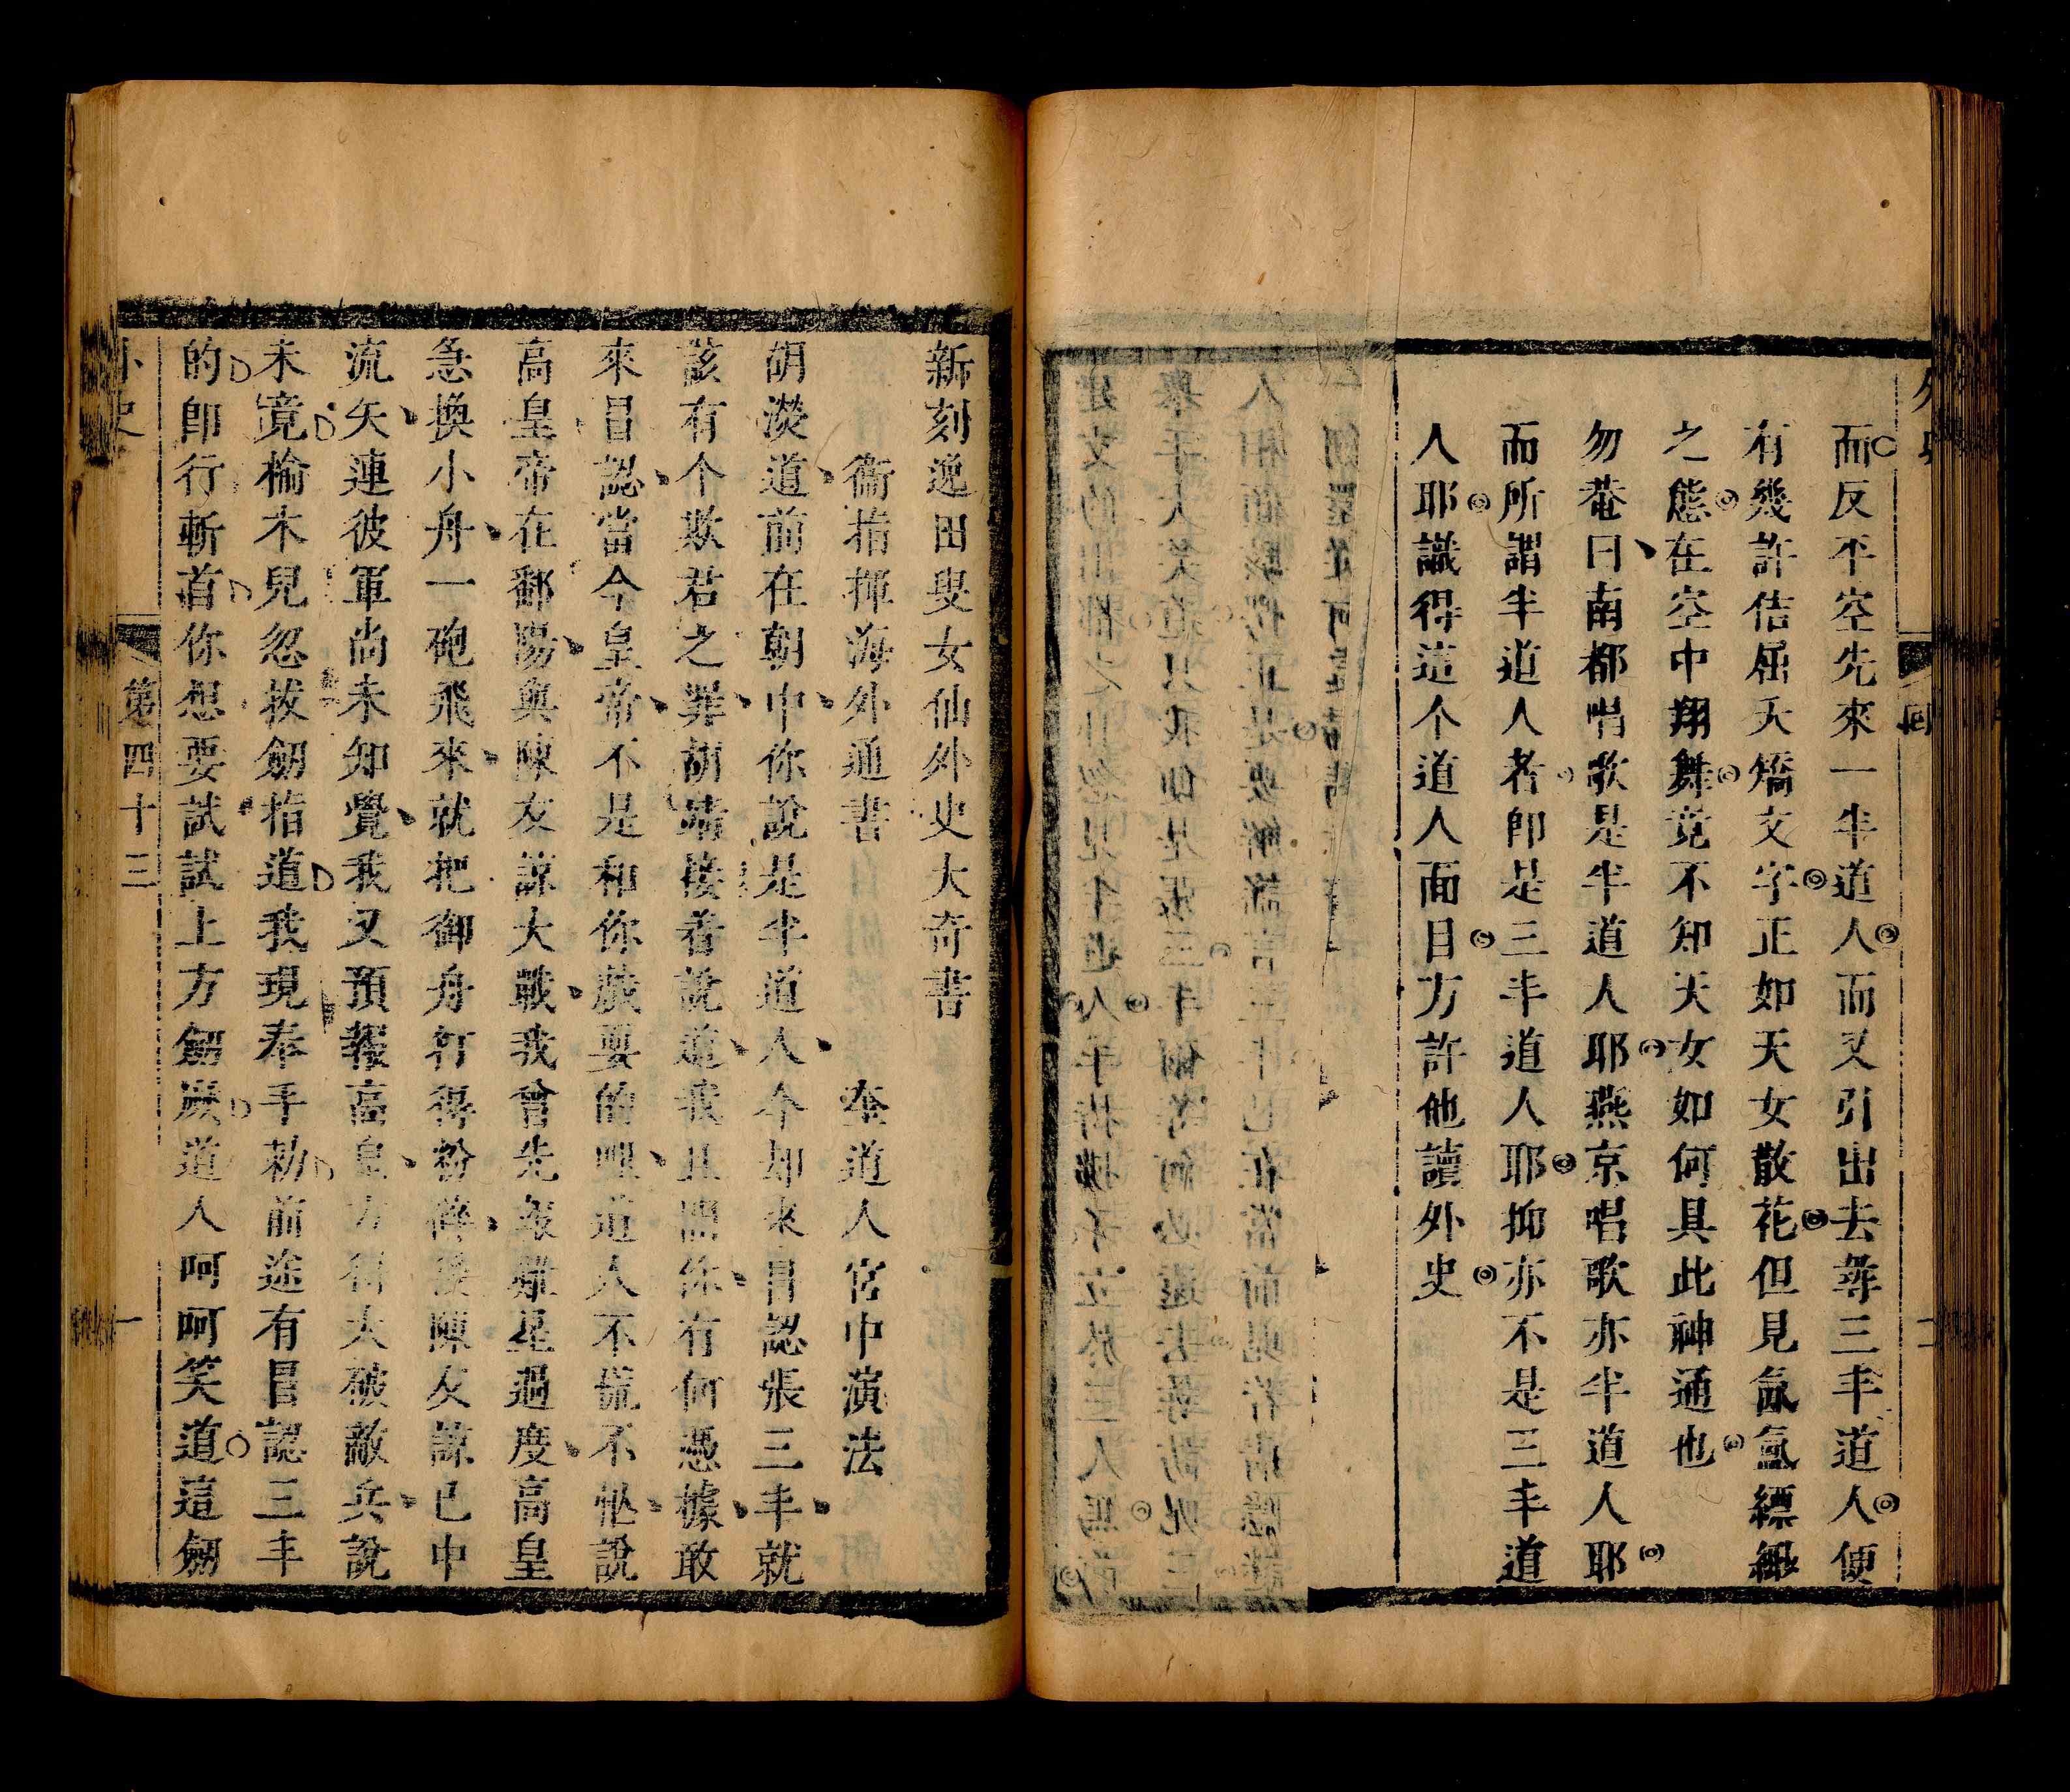 而反平空先來一半道人而又引出去尋三丰道人便
有幾許佶屈夭矯文字正如天女散花但見氤氳縹緲
之態在空中翔舞竟不知天女如何具此神通也
勿菴曰南都唱歌是半道人耶燕京唱歌亦半道人耶
而所謂半道人者即是三丰道人耶抑亦不是三丰道
人耶識得這个道人面目方許他讀外史
新刻逸田叟女仙外史大奇書
衛指揮海外通書 奎道人宮中演法
胡濙道前在朝中你說是半道人今却來冒認張三丰就
該有个欺君之罪胡靖接着說道我且問你有何憑據敢
來冒認當今皇帝不是和你戲耍的哩道人不慌不忙說
高皇帝在鄱陽與陳友諒大戰我曾先報難星過度高皇
急換小舟一砲飛來就把御舟打得粉碎後陳友諒已中
流矢連彼軍尚未知覺我又預報高皇方得大破敵兵說
未竟榆木兒忽拔劒指道我現奉手勅前途有冒認三丰
的即行斬首你想要試試上方劒麽道人呵呵笑道這劒
外史 第四十三 一